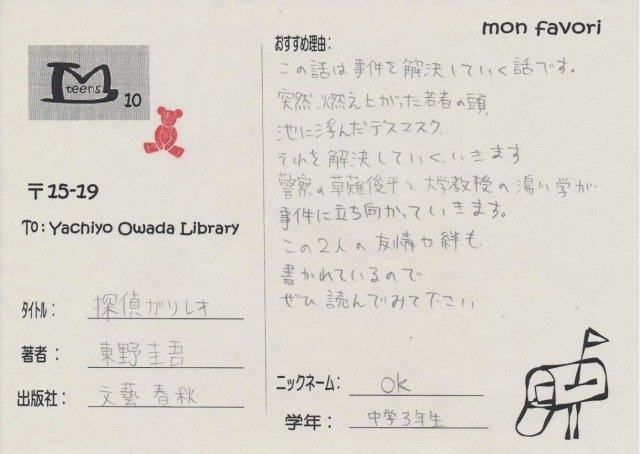 mon favori
M
teens
10
〒15-19
TO: Yachiyo Owada Library
タイトル: 探偵ガリレオ
著者: 東野圭吾
出版社: 文藝春秋
おすすめ理由:
この話は事件を解決していく話です。
突然、燃え上がった若者の頭、
池に浮んだデスマスク、
それを解決していく、いきます
警察の草薙俊平と大学教授の湯川学が
事件に立ち向かっていきます。
この2人の友情や絆も
書かれているので
ぜひ読んでみて下さい
ニックネーム: OK
学年: 中学3年生